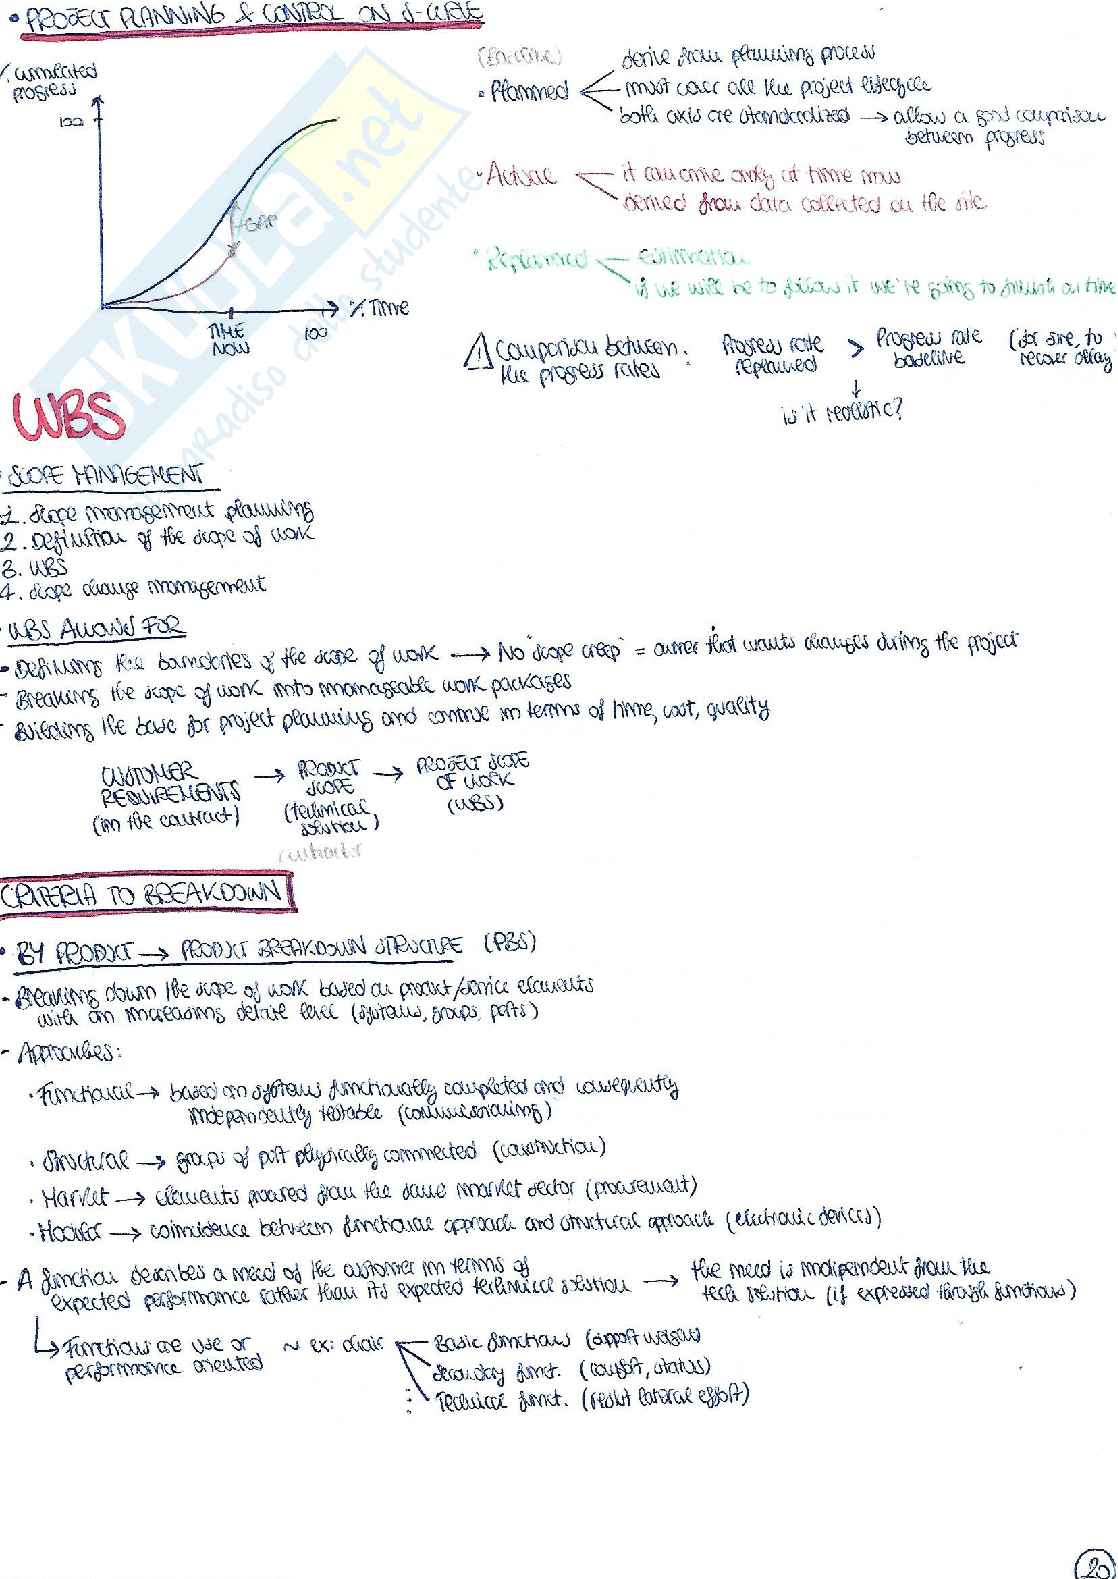 • PROJECT PLANNING & CONTROL ON S-CURVE
% cumulated
progress
100
GAP
TIME
NOW
100
% TIME
(Baseline)
• Planned
derive from planning process
must cover all the project lifecycle
both axis are standardized → allow a good comparison
between progress
• Actual
it can arrive only at time now
derived from data collected on the site
• Replanned
estimation
if we will be to follow it we're going to finish on time
⚠ Comparison between
the progress rates :
Progress rate
replanned
>
Progress rate
baseline
(for sure, to
recover delay
is it realistic?
SKUOLA.net
paradiso dello studente
WBS
• SCOPE MANAGEMENT
1. Scope management planning
2. Definition of the scope of work
3. WBS
4. Scope change management
• WBS ALLOWS FOR
- Defining the boundaries of the scope of work → No "scope creep" = owner that wants changes during the project
- Breaking the scope of work into manageable work packages
- Building the base for project planning and control in terms of time, cost, quality
CUSTOMER
REQUIREMENTS
(in the contract)
→ PRODUCT
SCOPE
(technical
solution)
(contract)
→ PROJECT SCOPE
OF WORK
(WBS)
CRITERIA TO BREAKDOWN
• BY PRODUCT → PRODUCT BREAKDOWN STRUCTURE (PBS)
- Breaking down the scope of work based on product/service elements
with an increasing detail level (systems, groups, parts)
- Approaches:
• Functional → based on systems functionally completed and consequently
independently testable (commissioning)
• Structural → groups of part physically connected (construction)
• Market → elements procured from the same market sector (procurement)
• → coincidence between functional approach and structural approach (electronic devices)
- A function describes a need of the customer in terms of
expected performance rather than its expected technical solution → the need is indipendent from the
tech solution (if expressed through functions)
↳ Functions are use or
performance oriented
~ ex: chair
Basic function (support weight)
Secondary funct. (comfort, status)
Technical funct. (resist lateral effort)
20